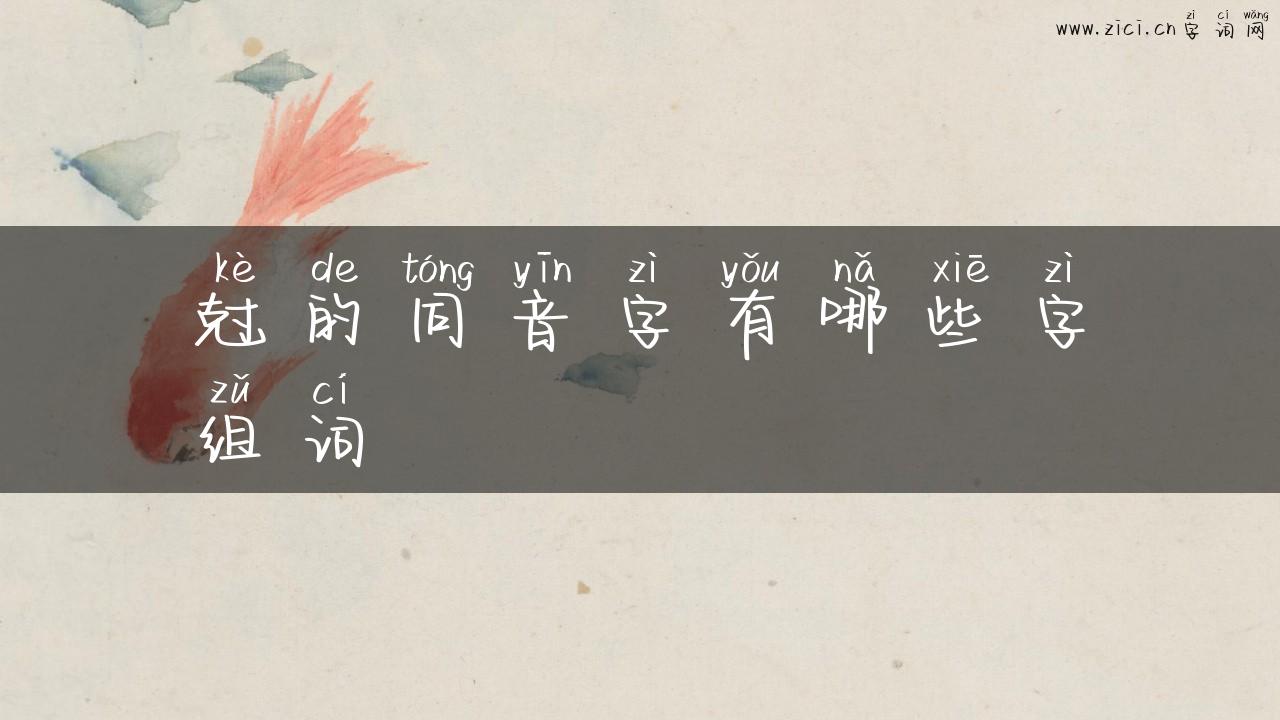 zì cí wǎng
www.zici.cn 字词网
kè de tóng yīn zì yǒu nǎ xiē zì
尅的同音字有哪些字
zǔ cí
组词